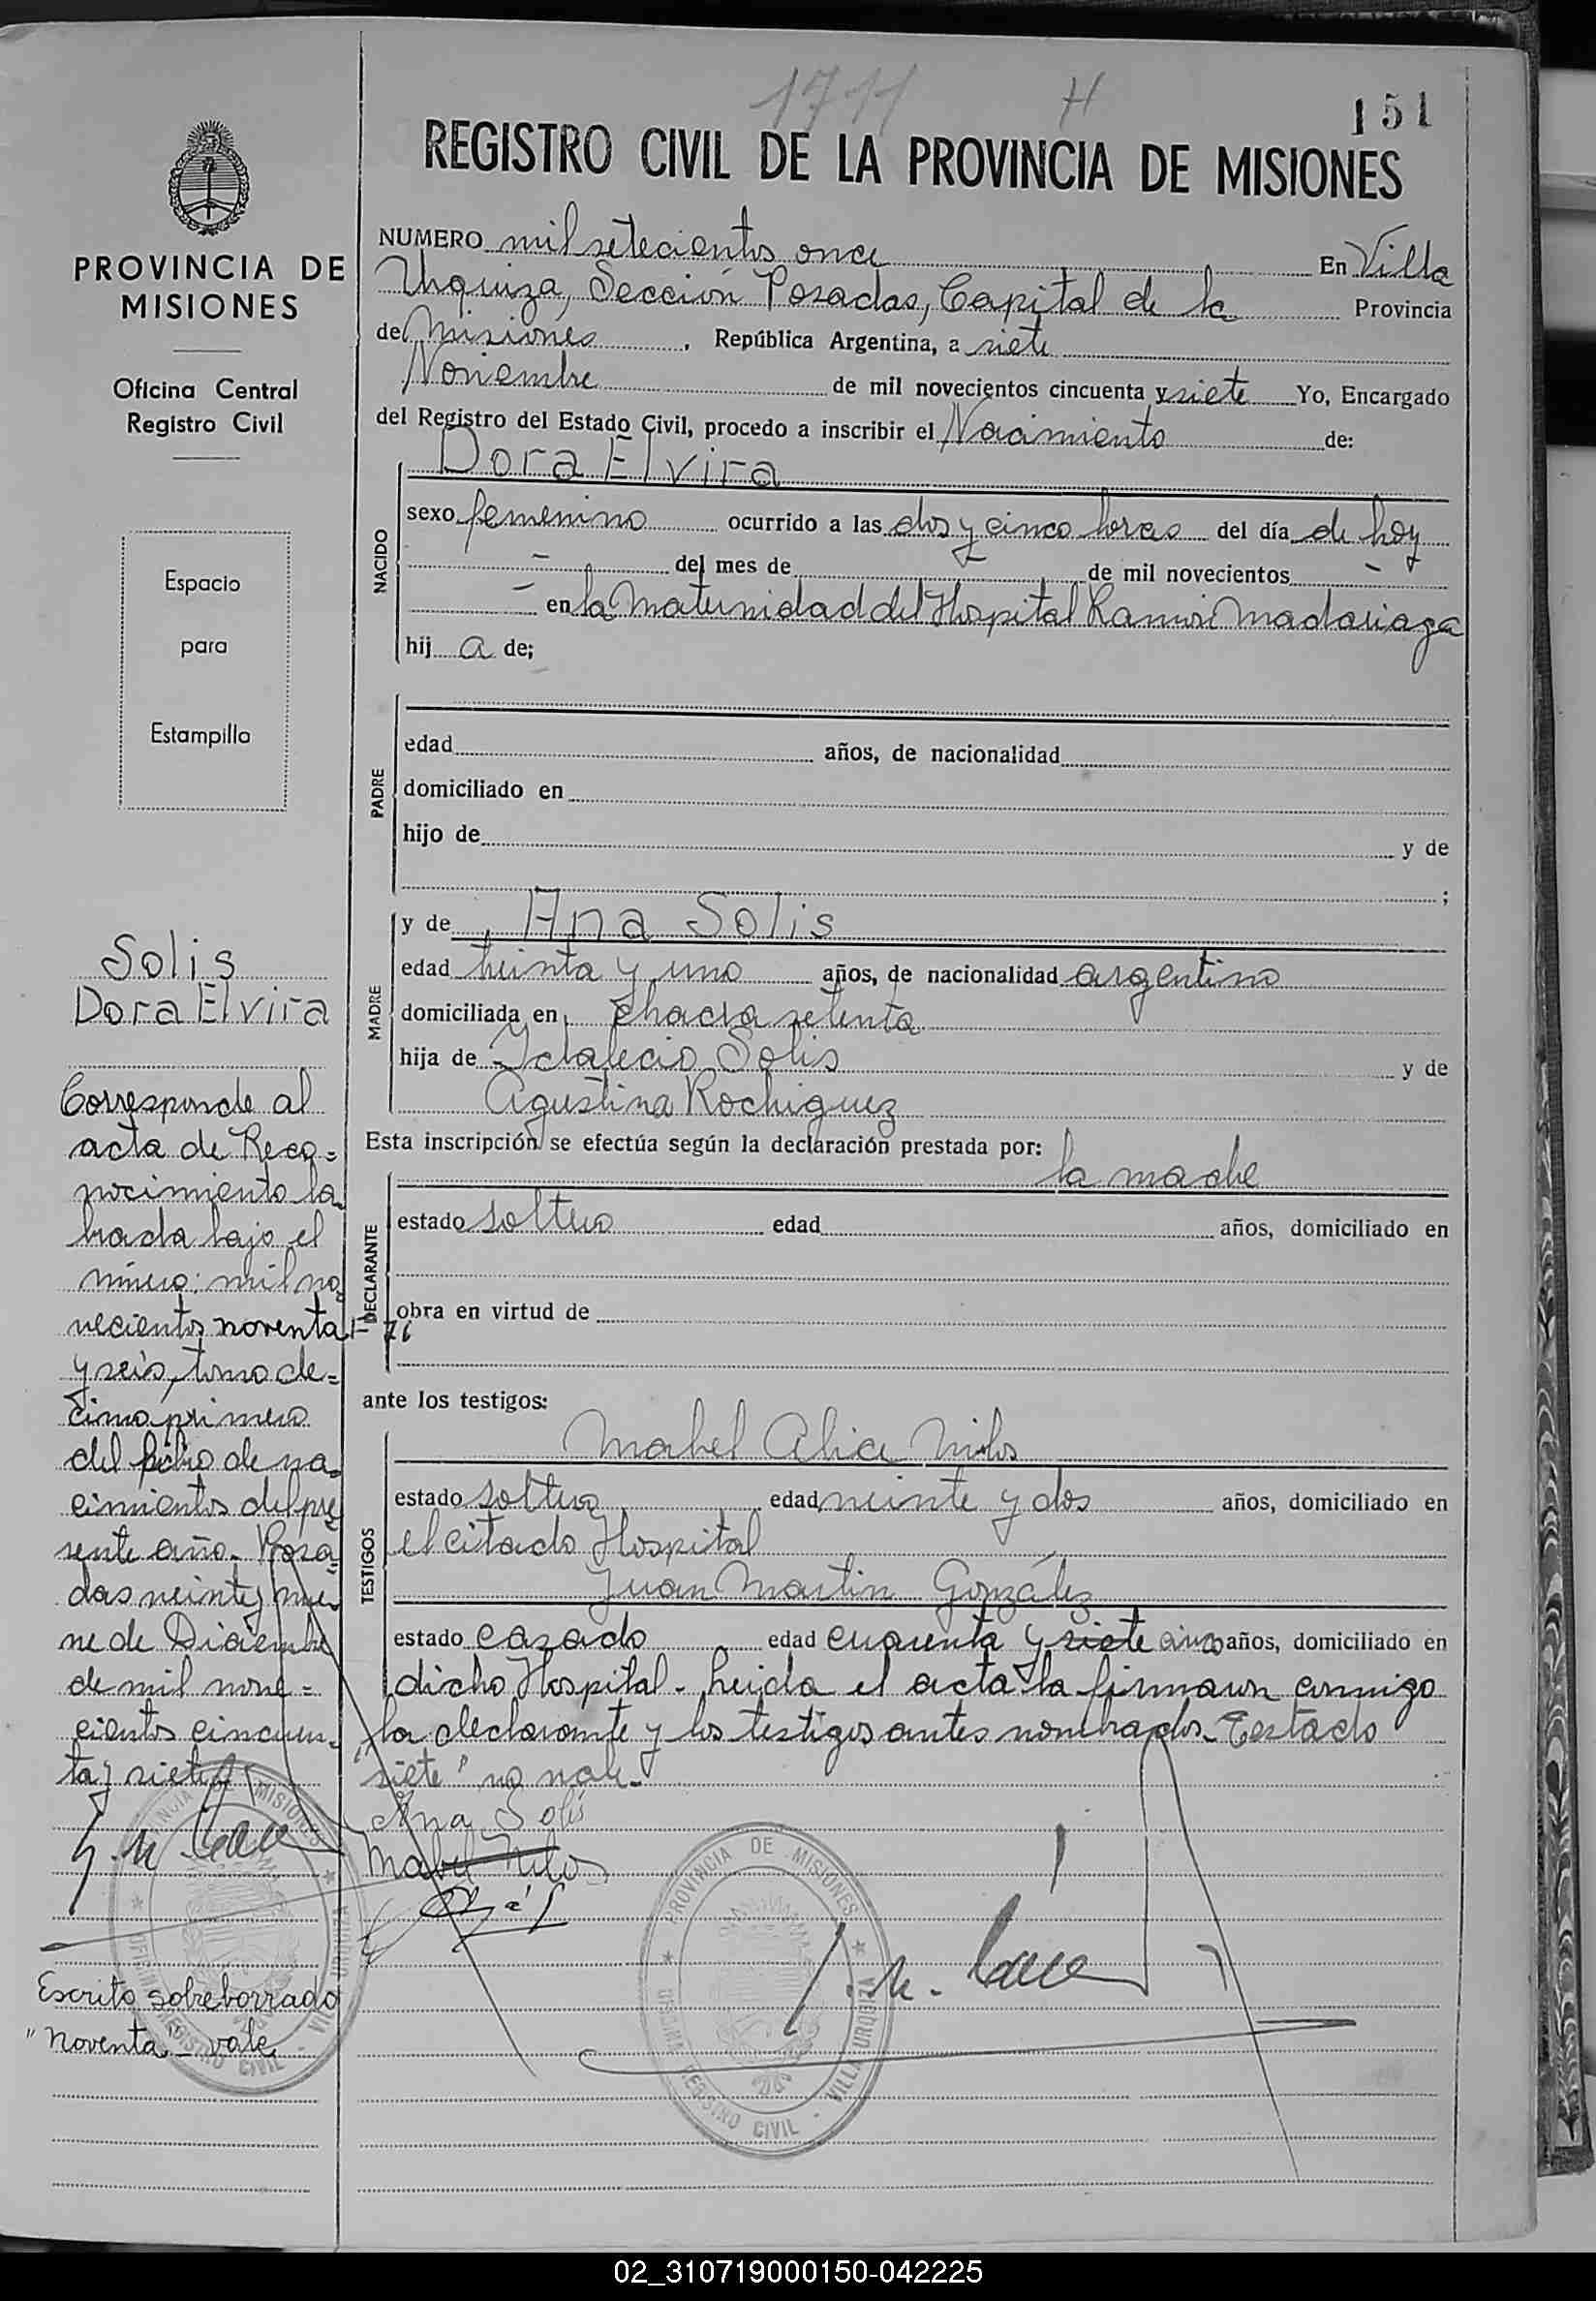 1711 H 151
REGISTRO CIVIL DE LA PROVINCIA DE MISIONES
PROVINCIA DE
MISIONES
Oficina Central
Registro Civil
Espacio
para
Estampilla
Solis
Dora Elvira
Corresponde al
acta de Reco=
nocimiento la
brada bajo el
número: mil no
vecientos noventa F 76
y seis, tomo de=
cimo primero
del libro de na=
cimientos del pre
sente año. Posa
das veinte y nue
ve de Diciembre
de mil nove=
cientos cincuen=
ta y siete
Escrito sobreborrado
"noventa" - vale
NUMERO mil setecientos once En Villa
Urquiza, Sección Posadas, Capital de la Provincia
de Misiones, República Argentina, a siete
Noviembre de mil novecientos cincuenta y siete Yo, Encargado
del Registro del Estado Civil, procedo a inscribir el Nacimiento de:
NACIDO
Dora Elvira
sexo femenino ocurrido a las dos y cinco horas del día de hoy
- del mes de - de mil novecientos -
- en la Maternidad del Hospital Ramón Madariaga
hij a de;
PADRE
edad años, de nacionalidad
domiciliado en
hijo de y de
;
MADRE
y de Ana Solis
edad treinta y uno años, de nacionalidad argentino
domiciliada en chacra setenta
hija de Solis y de
Agustina Rodriguez
Esta inscripción se efectúa según la declaración prestada por:
la madre
DECLARANTE
estado soltero edad años, domiciliado en
obra en virtud de
ante los testigos:
TESTIGOS
Mabel Alice Nilos
estado soltero edad veinte y dos años, domiciliado en
el citado Hospital
Juan Martin González
estado casado edad cuarenta y siete cinco años, domiciliado en
dicho Hospital. Leida el acta la firmaron conmigo
la declarante y los testigos antes nombrados. Testado
"siete" no vale.
Ana Solis
Mabel Nilos
PROVINCIA DE MISIONES
OFICINA REGISTRO CIVIL - VILLA URQUIZA
02_310719000150-042225